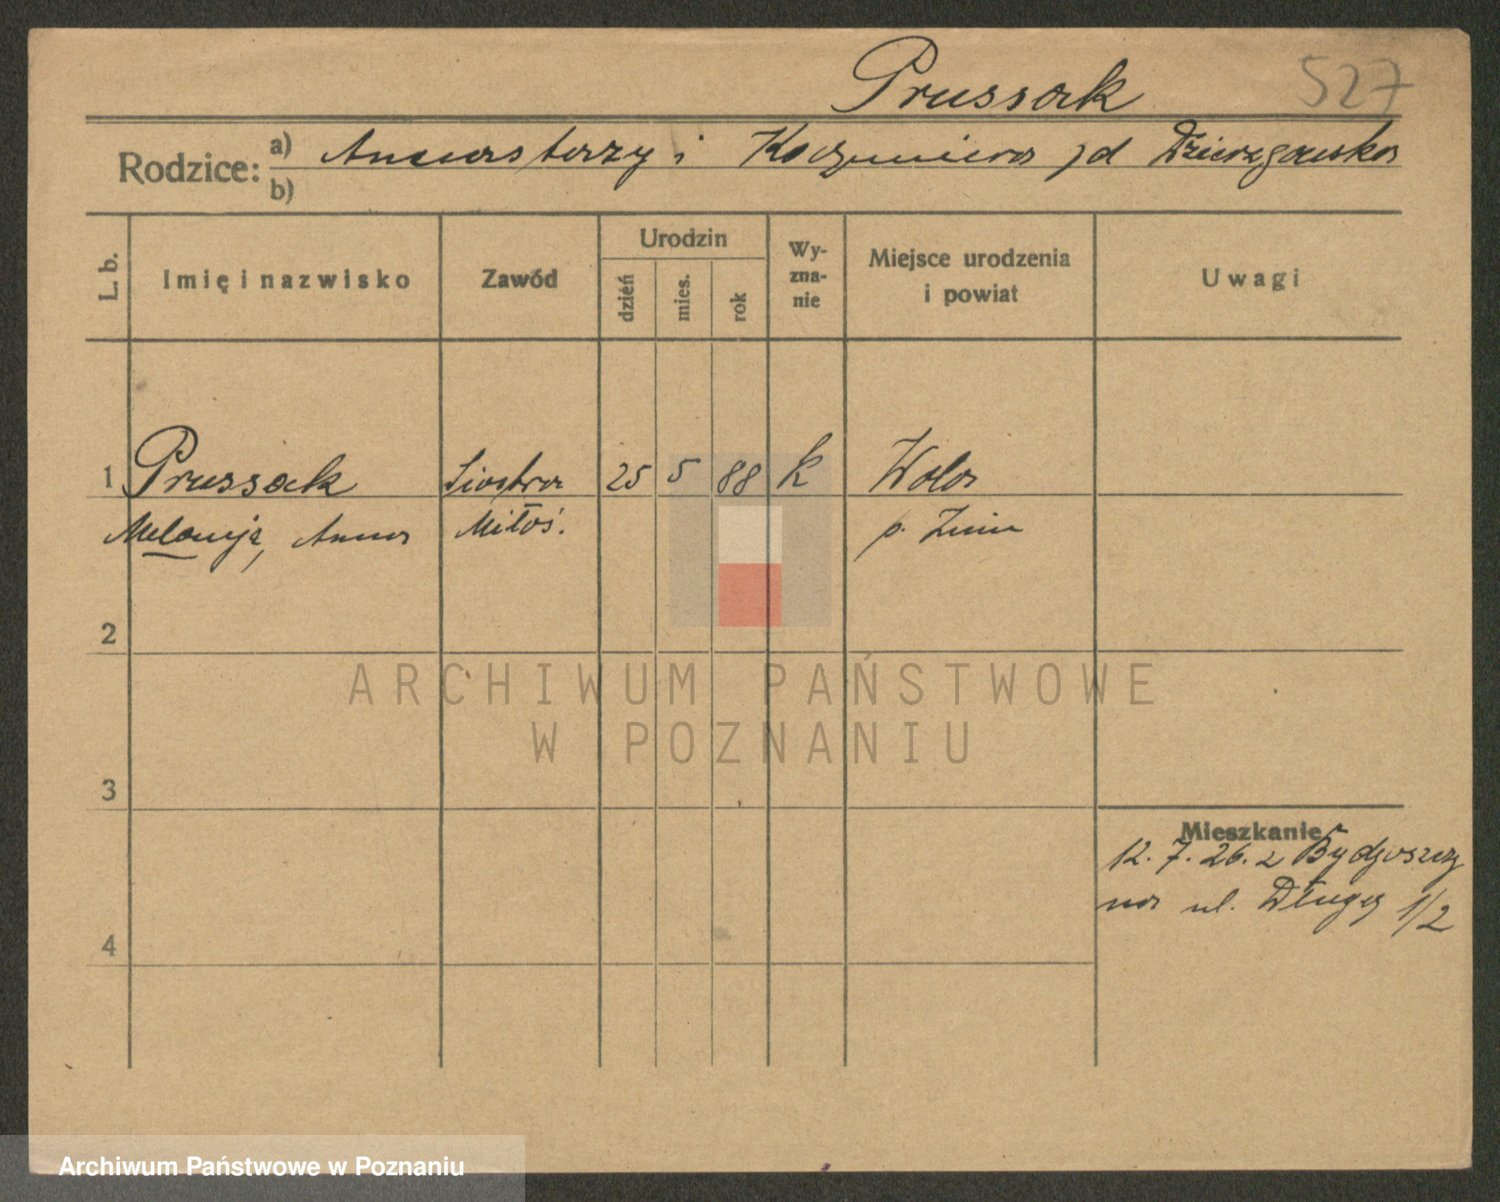 Prussak 527
Rodzice: a) Anastazy i Kazimiera zd Dzierzgowska
b)
L. b. Imię i nazwisko Zawód Urodzin dzień mies. rok Wy-zna-nie Miejsce urodzenia i powiat Uwagi
1 Prussak Siostra 25 5 88 k Wola
Melanija, Anna Miłoś. p. Żnin
2
3
4
Mieszkanie
12. 7. 26. z Bydgoszczy
na ul. Długą 1/2
ARCHIWUM PAŃSTWOWE
W POZNANIU
Archiwum Państwowe w Poznaniu